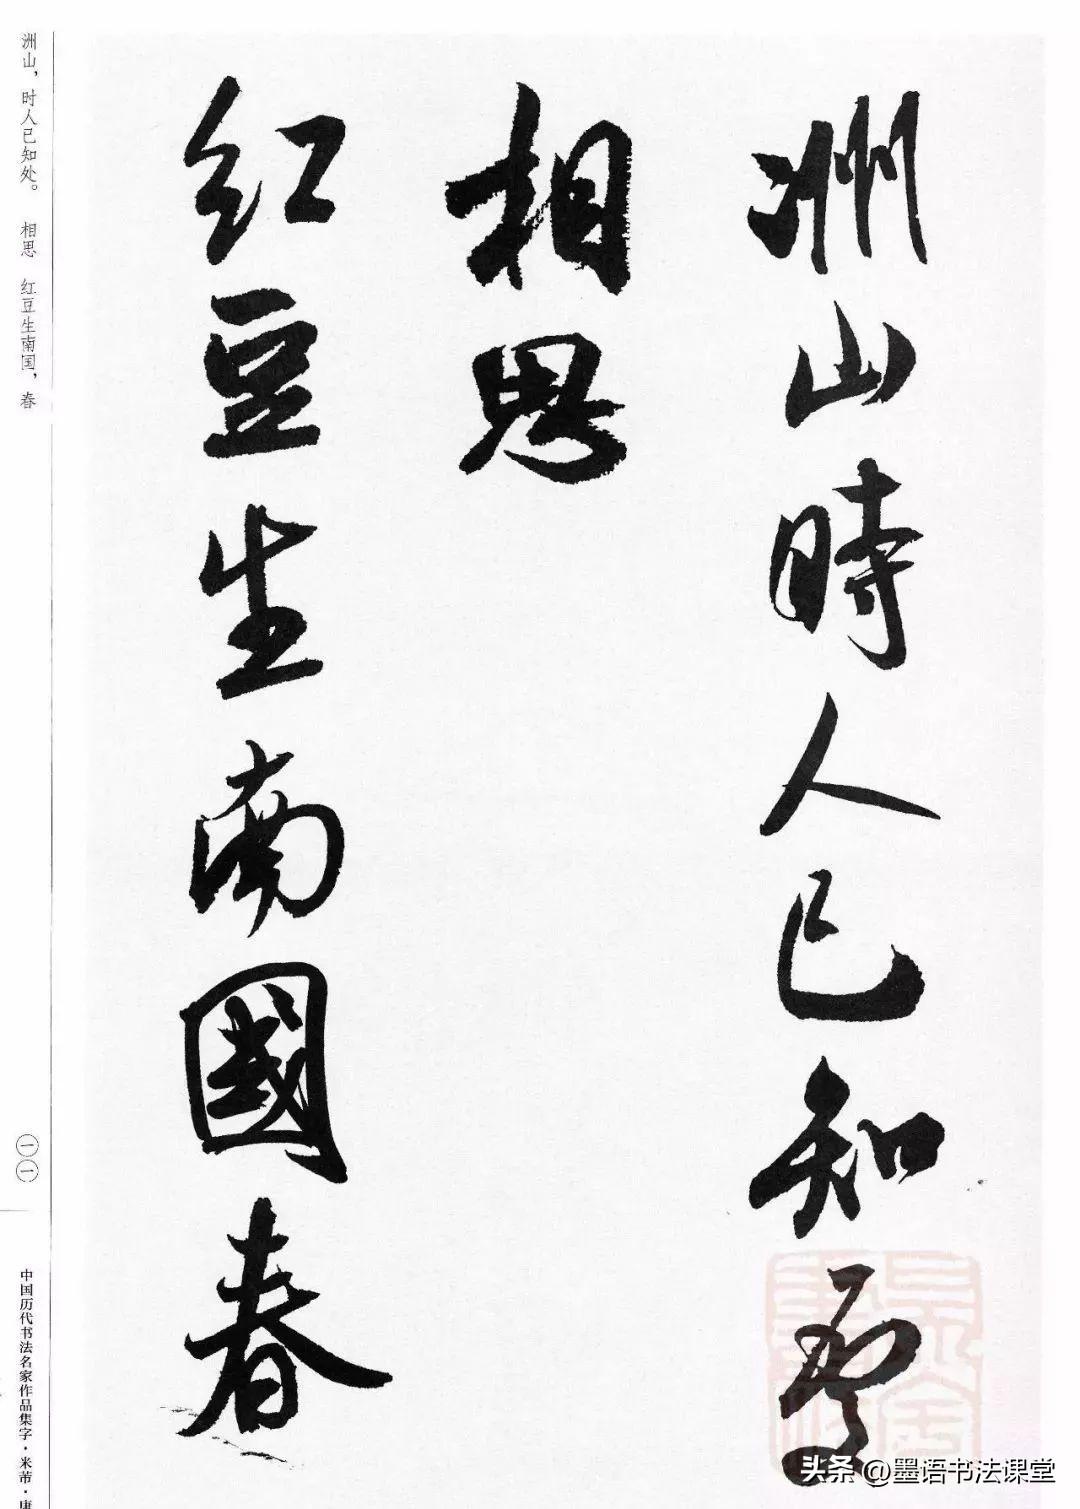 洲山時人已知處
相思
红豆生南國春
洲山，时人已知处。 相思 红豆生南国，春
一一
中国历代书法名家作品集字·米芾·唐
头条 @墨语书法课堂